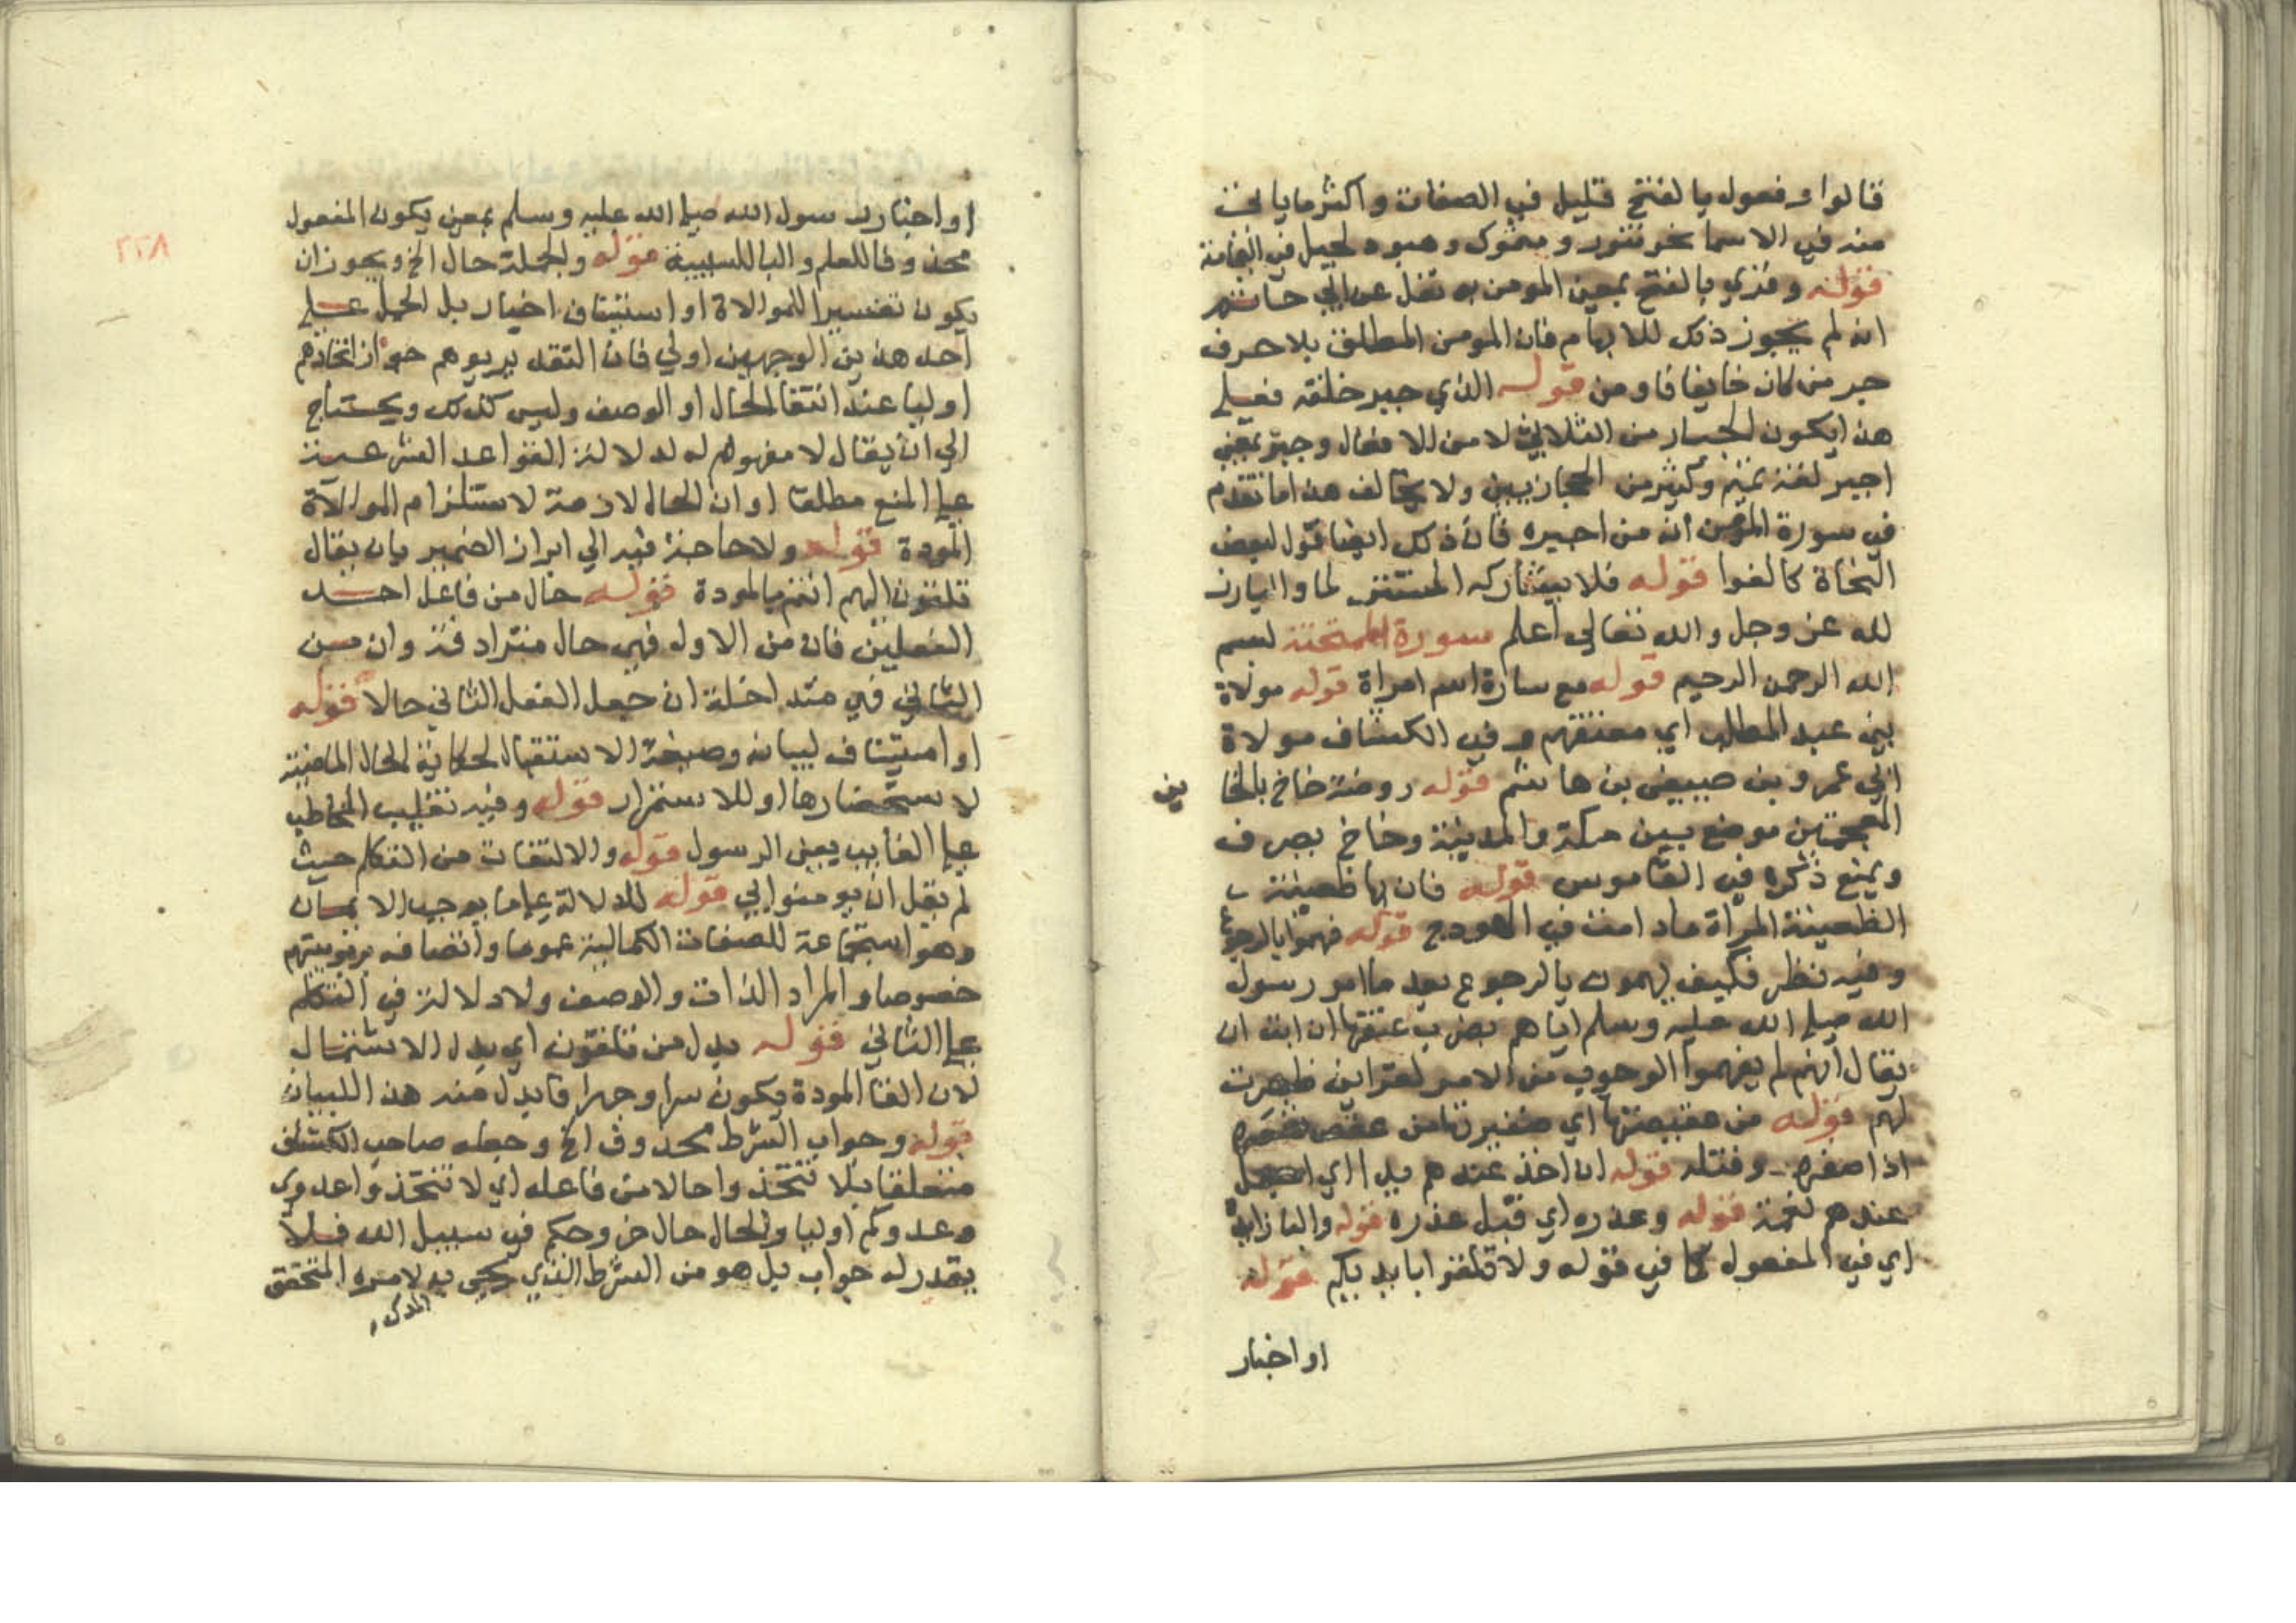 قالوا وفعول بالفتح قليل في الصفات واكثر ما ياتي
منه في الاسما نحو تنور وسمور وهبود لجبل في اليمامة
قوله وقري بالفتح بمعني المومن به نقل عن ابي حاتم
انه لم يجوز ذلك للابهام فان المومن المطلق بلا حرف
جر من كان خايفا فاومن قوله الذي جبر خلقه فعلي
هذا يكون الجبار من الثلاثي لا من الافعال وجبر بمعني
اجبر لغة تميم وكثير من الحجازيين ولا يخالف هذا ما تقدم
في سورة المومن انه من اجبره فان ذلك ايضا قول لبعض
النحاة كالفرا قوله فلا يشاركه
لله عز وجل والله تعالي اعلم سورة الممتحنة بسم
الله الرحمن الرحيم قوله مع سارة اسم امراة قوله مولاة
بني عبد المطلب اي معتقهم وفي الكشاف مولاة
ابي عمرو بن صيفي بن هاشم قوله روضة خاخ بالخا
ين
المعجمتين موضع بين مكة والمدينة وخاخ بصرف
ويمنع ذكره في القاموس قوله فان بها ظعينة
الظعينة المراة مادامت في الهودج قوله فهموا بالرجوع
وفيه نظر فكيف يهمون بالرجوع بعد ما امر رسول
الله صلي الله عليه وسلم اياهم بضرب عنقها ان ابت ان
يقال انهم لم يفهموا الوجوب من الامر لقراين ظهرت
لهم قوله من عقيصتها اي ضفيرتها من عقص شعره
اذا ضفره وفتله قوله ان اخذ عندهم يدا اي اجعل
عندهم نعمة قوله وعذره اي قبل عذره قوله والبا زايدة
اي في المفعول كما في قوله ولا تلقوا بايديكم قوله
او اخبار
٢٢٨
او اخبار رسول الله صلي الله عليه وسلم بمعني يكون المفعول
محذوفا للعلم والبا للسببية قوله والجملة حال الخ ويجوز ان
يكون تفسيرا للموالاة او استيناف اخبار بل الحمل علي
احد هذين الوجهين اولي فان التقدير يوهم جواز اتخاذهم
اوليا عند انتفا الحال او الوصف وليس كذلك ويحتاج
الي ان يقال لا مفهوم له لدلالة القواعد الشرعية
علي المنع مطلقا او ان الحال لازمة لاستلزام الموالاة
المودة قوله ولا حاجة فيه الي ابراز الضمير بان يقال
تلقون اليهم انتم بالمودة قوله حال من فاعل احد
الفعلين فان من الاول فهي حال مترادفة وان من
الثاني فهي متداخلة ان جعل الفعل الثاني حالا قوله
او استيناف لبيانه وصيغة الاستقبال لحكاية الحال الماضية
لاستحضارها او للاستمرار قوله وفيه تغليب المخاطب
علي الغايب يعني الرسول قوله والالتفات من التكلم حيث
لم يقل ان يومنوا بي قوله للدلالة علي ما يوجب الايمان
وهو استجماعه للصفات الكمالية عموما واتصافه بربوبيتهم
خصوصا والمراد الذات والوصف ولا دلالة في التكلم
علي الثاني قوله بدل من تلقون اي بدل الاشتمال
لان القا المودة يكون سرا وجهرا فابدل منه هذا للبيان
قوله وجواب الشرط محذوف الخ وجعله صاحب الكشاف
متعلقا بلا تتخذوا حالا من فاعله اي لا تتخذوا عدوي
وعدوكم اوليا والحال حال خروجكم في سبيل الله فلا
يقدر له جواب بل هو من الشرط الذي يجي به لامره المتحقق